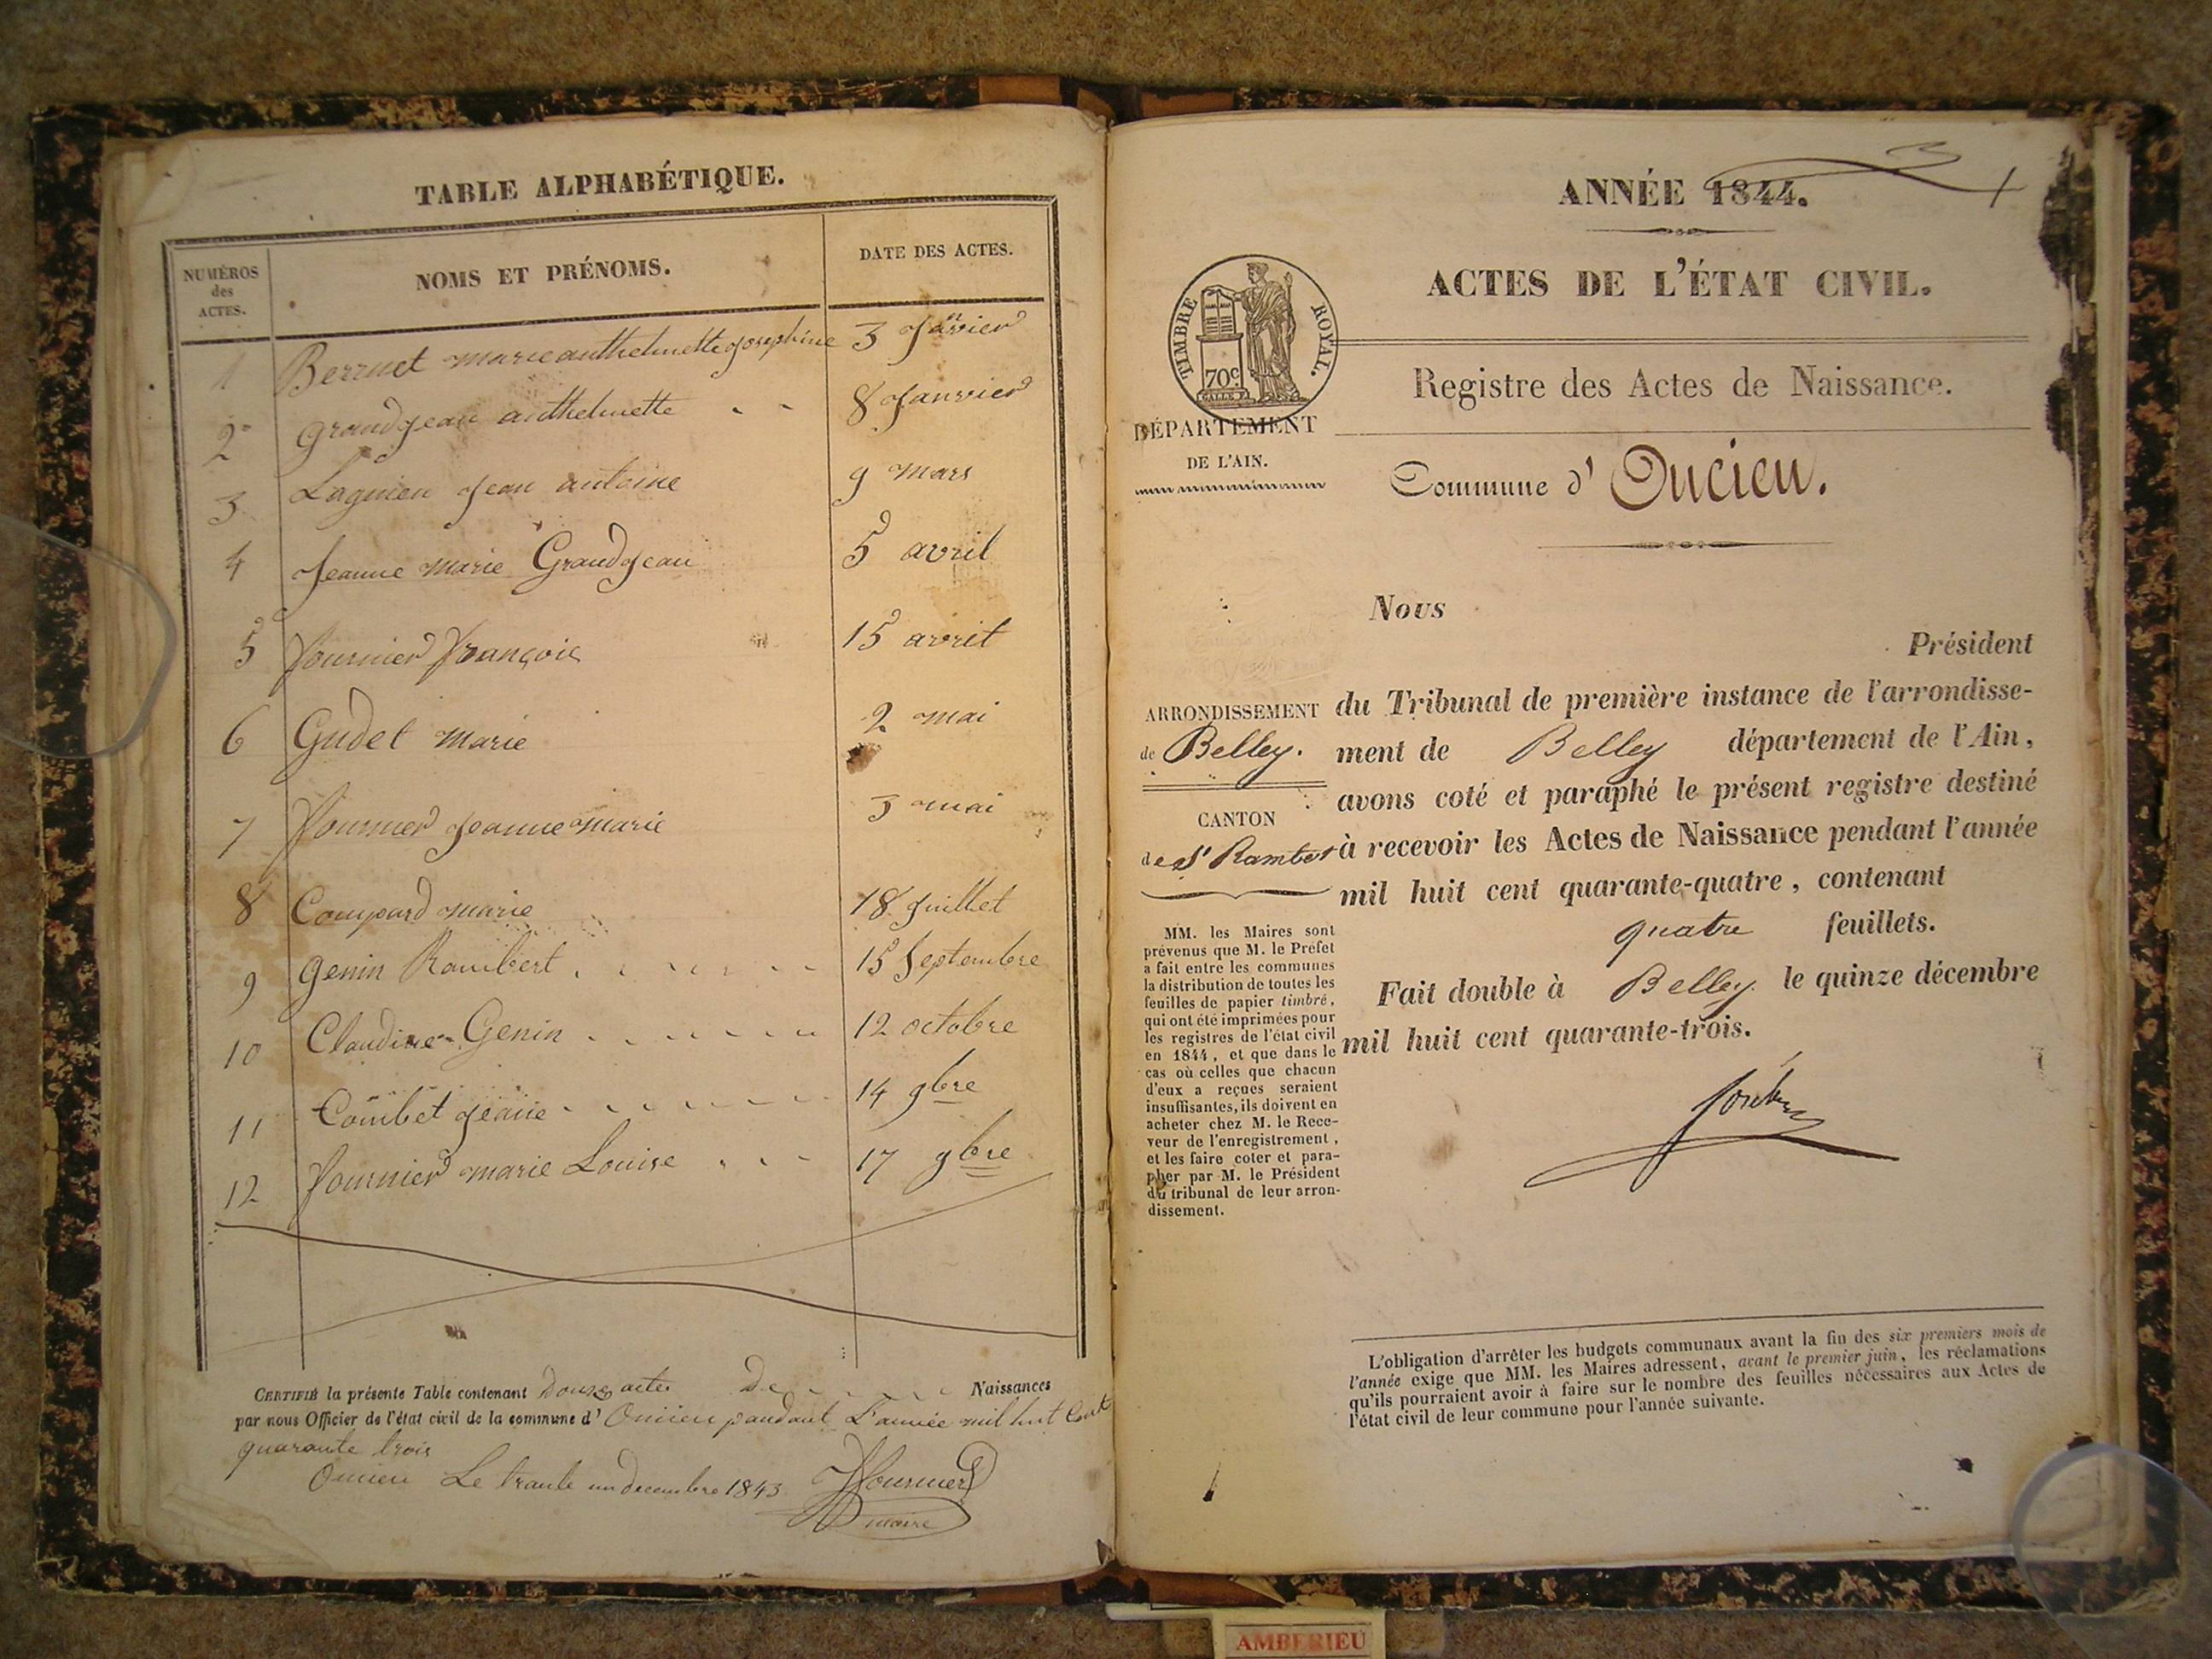 TABLE ALPHABÉTIQUE.
NUMÉROS des ACTES.
NOMS ET PRÉNOMS.
DATE DES ACTES.
1 Berrnet marie anthelmette Josephine 3 Janvier
2 grandjean anthelmette 8 Janvier
3 Lagnieu Jean antoine 9 mars
4 Jeanne marie Grandjean 5 avril
5 fournier françois 15 avril
6 Gudet marie 2 mai
7 fournier Jeanne marie 3 mai
8 Coupard marie 18 Juillet
9 genin Rambert 15 Septembre
10 Claudine Genin 12 octobre
11 Combet Jeanne 14 9bre
12 fournier marie Louise 17 9bre
CERTIFIÉ la présente Table contenant Douze actes De Naissances
par nous Officier de l'état civil de la commune d' Oncieu pandant L'année mil huit Cent
quarante trois
Oncieu Le trante un decembre 1843 Fournier
maire
ANNÉE 1844.
1
ACTES DE L'ÉTAT CIVIL.
TIMBRE ROYAL.
70c
Registre des Actes de Naissance.
DÉPARTEMENT
DE L'AIN.
Commune d' Oncieu.
Nous
Président
du Tribunal de première instance de l'arrondisse-
ment de Belley département de l'Ain,
avons coté et paraphé le présent registre destiné
à recevoir les Actes de Naissance pendant l'année
mil huit cent quarante-quatre, contenant
quatre feuillets.
Fait double à Belley. le quinze décembre
mil huit cent quarante-trois.
ARRONDISSEMENT
de Belley.
CANTON
de St Rambert
MM. les Maires sont
prévenus que M. le Préfet
a fait entre les communes
la distribution de toutes les
feuilles de papier timbré,
qui ont été imprimées pour
les registres de l'état civil
en 1844, et que dans le
cas où celles que chacun
d'eux a reçues seraient
insuffisantes, ils doivent en
acheter chez M. le Rece-
veur de l'enregistrement,
et les faire coter et para-
pher par M. le Président
du tribunal de leur arron-
dissement.
L'obligation d'arrêter les budgets communaux avant la fin des six premiers mois de
l'année exige que MM. les Maires adressent, avant le premier juin, les réclamations
qu'ils pourraient avoir à faire sur le nombre des feuilles nécessaires aux Actes de
l'état civil de leur commune pour l'année suivante.
AMBERIEU